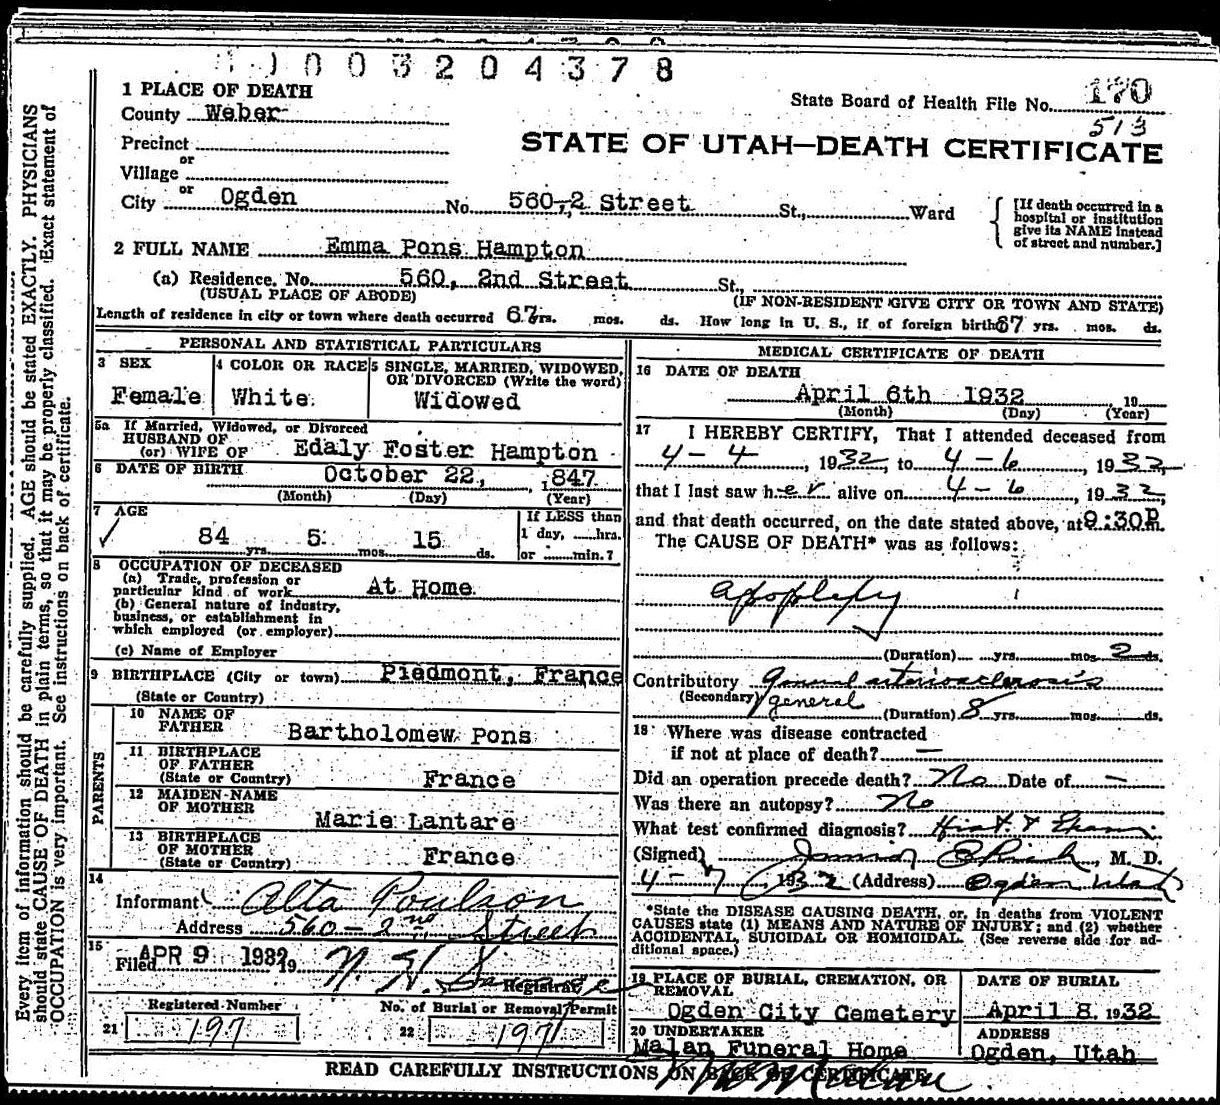 1003204378
1 PLACE OF DEATH
State Board of Health File No. 170
County Weber
513
STATE OF UTAH—DEATH CERTIFICATE
Precinct
or
Village
or
City Ogden No. 560, 2 Street St., Ward
[If death occurred in a
hospital or institution
give its NAME instead
of street and number.]
2 FULL NAME Emma Pons Hampton
(a) Residence. No. 560, 2nd Street St.,
(USUAL PLACE OF ABODE) (IF NON-RESIDENT GIVE CITY OR TOWN AND STATE)
Length of residence in city or town where death occurred 67 yrs. mos. ds. How long in U. S., if of foreign birth 67 yrs. mos. ds.
PERSONAL AND STATISTICAL PARTICULARS
3 SEX
Female
4 COLOR OR RACE
White
5 SINGLE, MARRIED, WIDOWED,
OR DIVORCED (Write the word)
Widowed
5a If Married, Widowed, or Divorced
HUSBAND OF
(or) WIFE OF Edaly Foster Hampton
6 DATE OF BIRTH October 22, 1847
(Month) (Day) (Year)
7 AGE
84 yrs. 5 mos. 15 ds.
If LESS than
1 day, hrs.
or min.?
8 OCCUPATION OF DECEASED
(a) Trade, profession or
particular kind of work At Home
(b) General nature of industry,
business, or establishment in
which employed (or employer)
(c) Name of Employer
9 BIRTHPLACE (City or town) Piedmont, France
(State or Country)
PARENTS
10 NAME OF
FATHER Bartholomew Pons
11 BIRTHPLACE
OF FATHER
(State or Country) France
12 MAIDEN-NAME
OF MOTHER Marie Lantare
13 BIRTHPLACE
OF MOTHER
(State or Country) France
14
Informant Alta Poulson
Address 560 - 2nd Street
15
Filed APR 9 1932 19
Registrar
Registered Number
21 197
No. of Burial or Removal Permit
22 197
MEDICAL CERTIFICATE OF DEATH
16 DATE OF DEATH
April 6th 1932 19
(Month) (Day) (Year)
17 I HEREBY CERTIFY, That I attended deceased from
4 - 4, 1932, to 4 - 6, 1932,
that I last saw her alive on 4 - 6, 1932,
and that death occurred, on the date stated above, at 9:30 P m.
The CAUSE OF DEATH* was as follows:
Apoplexy
(Duration) yrs. mos. 2 ds.
Contributory General arteriosclerosis
(Secondary) general
(Duration) 8 yrs. mos. ds.
18 Where was disease contracted
if not at place of death? —
Did an operation precede death? No Date of —
Was there an autopsy? No
What test confirmed diagnosis? Hist. & Exam.
(Signed) Junior E Rich, M. D.
4 - 7, 1932 (Address) Ogden Utah
*State the DISEASE CAUSING DEATH, or, in deaths from VIOLENT
CAUSES state (1) MEANS AND NATURE OF INJURY; and (2) whether
ACCIDENTAL, SUICIDAL OR HOMICIDAL. (See reverse side for ad-
ditional space.)
19 PLACE OF BURIAL, CREMATION, OR
REMOVAL
Ogden City Cemetery
DATE OF BURIAL
April 8, 1932
20 UNDERTAKER
Malan Funeral Home
ADDRESS
Ogden, Utah
READ CAREFULLY INSTRUCTIONS ON BACK OF CERTIFICATE
Every item of information should be carefully supplied. AGE should be stated EXACTLY. PHYSICIANS
should state CAUSE OF DEATH in plain terms, so that it may be properly classified. Exact statement of
OCCUPATION is very important. See instructions on back of certificate.